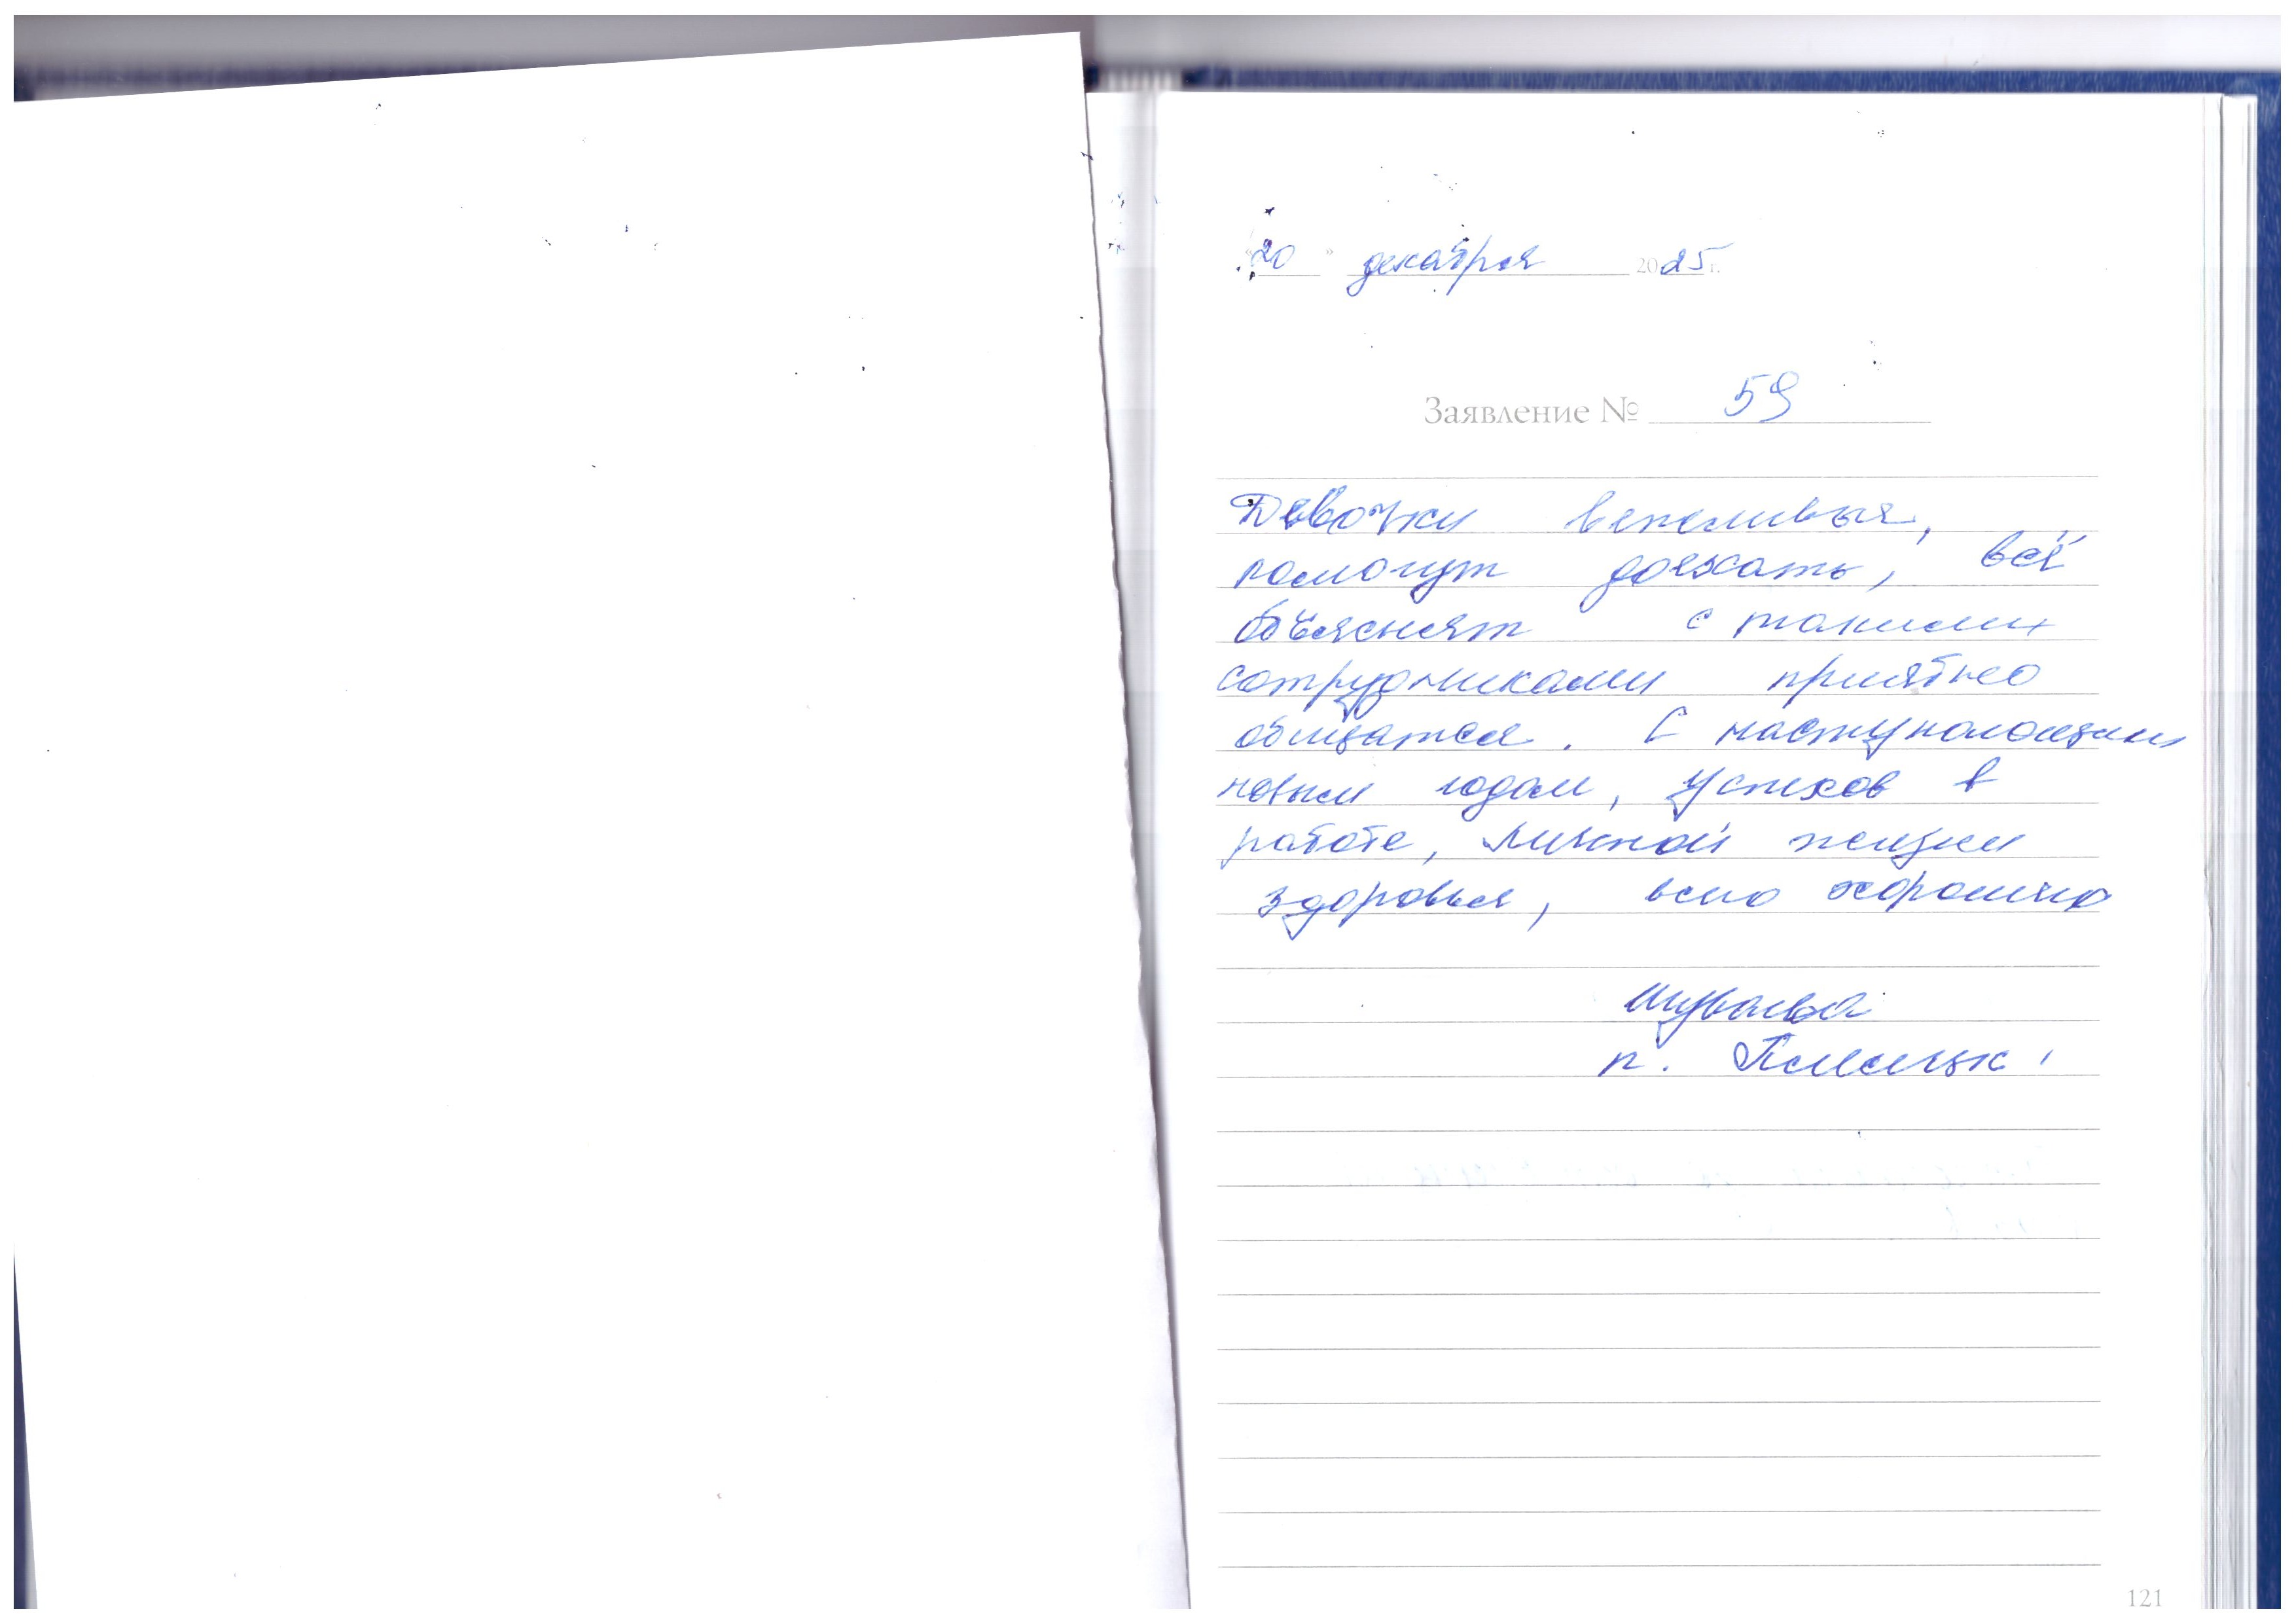 "20" декабря 2025 г.
Заявление № 59
Девочки вежливые,
помогут доехать, всё
объяснят с такими
сотрудниками приятно
общатся. С наступающим
новым годом, успехов в
работе, личной жизни
здоровья, всего хорошего
Шувалова
п.
121